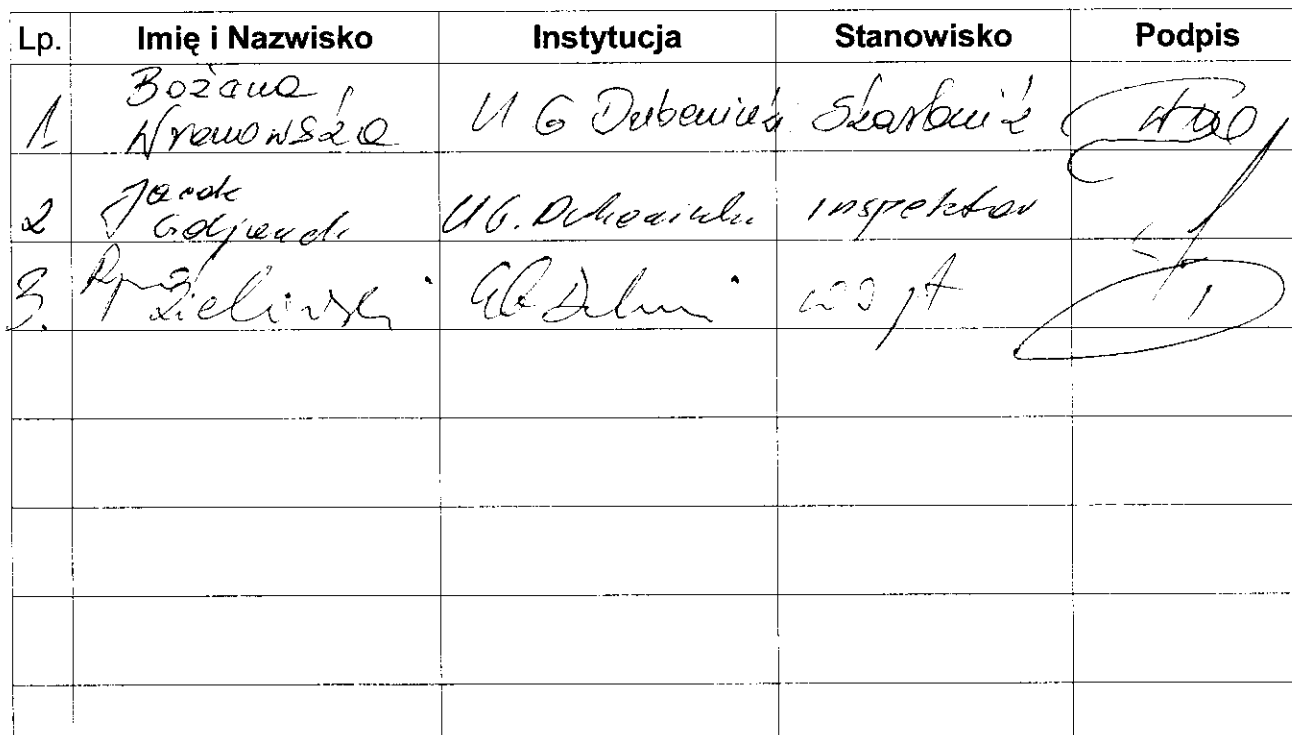 Lp. Imię i Nazwisko Instytucja Stanowisko Podpis
1. Bożana Wronowska U G Dubeninki Skarbnik
2 Jacek U G. Dubeninki inspektor
3. Zieliński wójt